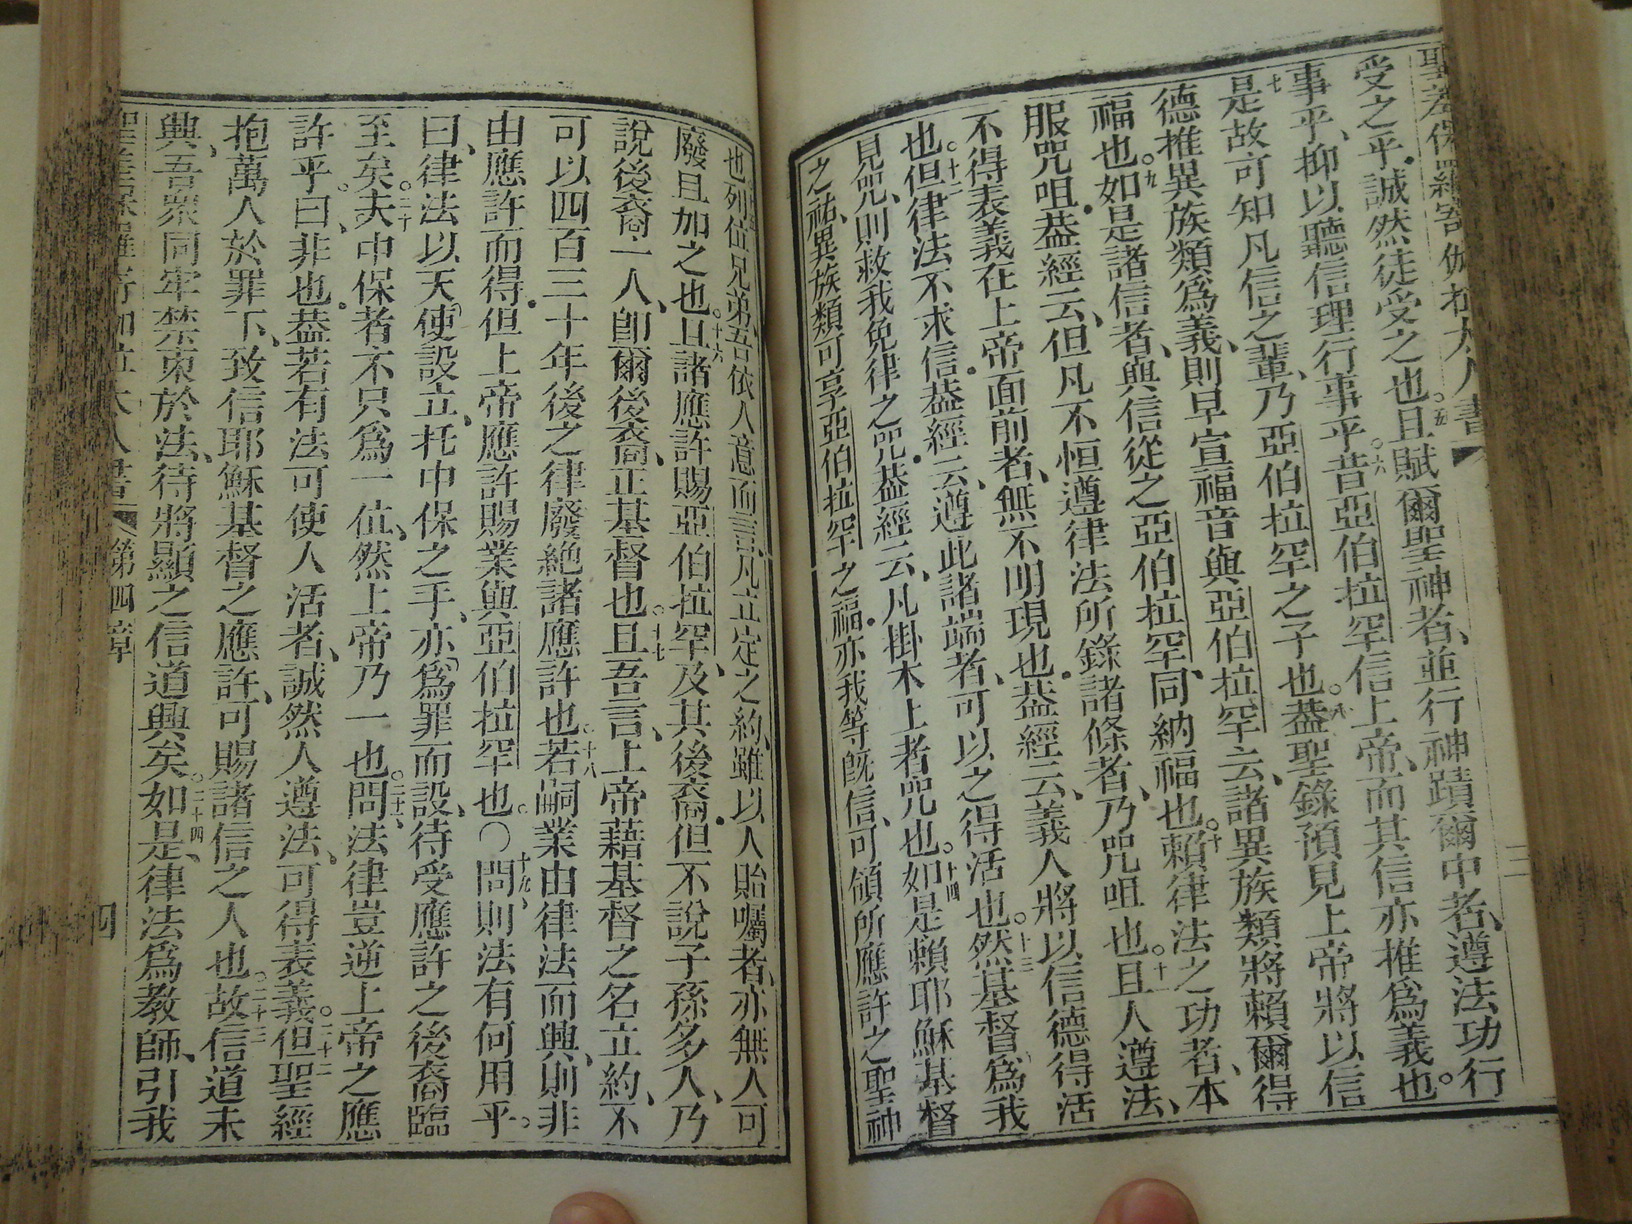 聖差保羅寄伽拉太人書
受之乎誠然徒受之也。五且賦爾聖神者、並行神蹟爾中者、遵法功行
事乎、抑以聽信理行事乎。六昔亞伯拉罕信上帝、而其信亦推爲義也。
七是故可知凡信之輩、乃亞伯拉罕之子也。八葢聖錄預見上帝將以信
德推異族類爲義、則早宣福音與亞伯拉罕云、諸異族類將賴爾得
福也。九如是諸信者、與信從之亞伯拉罕、同納福也。十賴律法之功者、本
服咒咀葢經云、但凡不恒遵律法所錄諸條者、乃咒咀也。十一且人遵法、
不得表義在上帝面前者、無不明現也葢經云、義人將以信德得活
也。十二但律法不求信葢經云、遵此諸端者、可以之得活也。十三然基督爲我
見咒、則救我免律之咒葢經云、凡掛木上者咒也。十四如是賴耶穌基督
之祐、異族類可享亞伯拉罕之福亦我等旣信、可領所應許之聖神
也列位兄弟、吾依人意而言、凡立定之約、雖以人貽囑者、亦無人可
廢且加之也。十六且諸應許賜亞伯拉罕、及其後裔但不說子孫多人、乃
說後裔一人、卽爾後裔、正基督也。十七且吾言、上帝藉基督之名立約、不
可以四百三十年後之律廢絶諸應許也。十八若嗣業由律法而興、則非
由應許而得但上帝應許賜業與亞伯拉罕也。〇十九問則法有何用乎。
曰、律法以天使設立、托中保之手、亦爲罪而設、待受應許之後裔臨
至矣。二十夫中保者不只爲一位、然上帝乃一也。二十一問法律豈逆上帝之應
許乎。曰、非也葢若有法可使人活者、誠然人遵法、可得表義。二十二但聖經
抱萬人於罪下、致信耶穌基督之應許、可賜諸信之人也。二十三故信道未
興、吾眾同牢禁束於法、待將顯之信道興矣。二十四如是、律法爲教師、引我
聖差保羅寄伽拉太人書 第四章 四